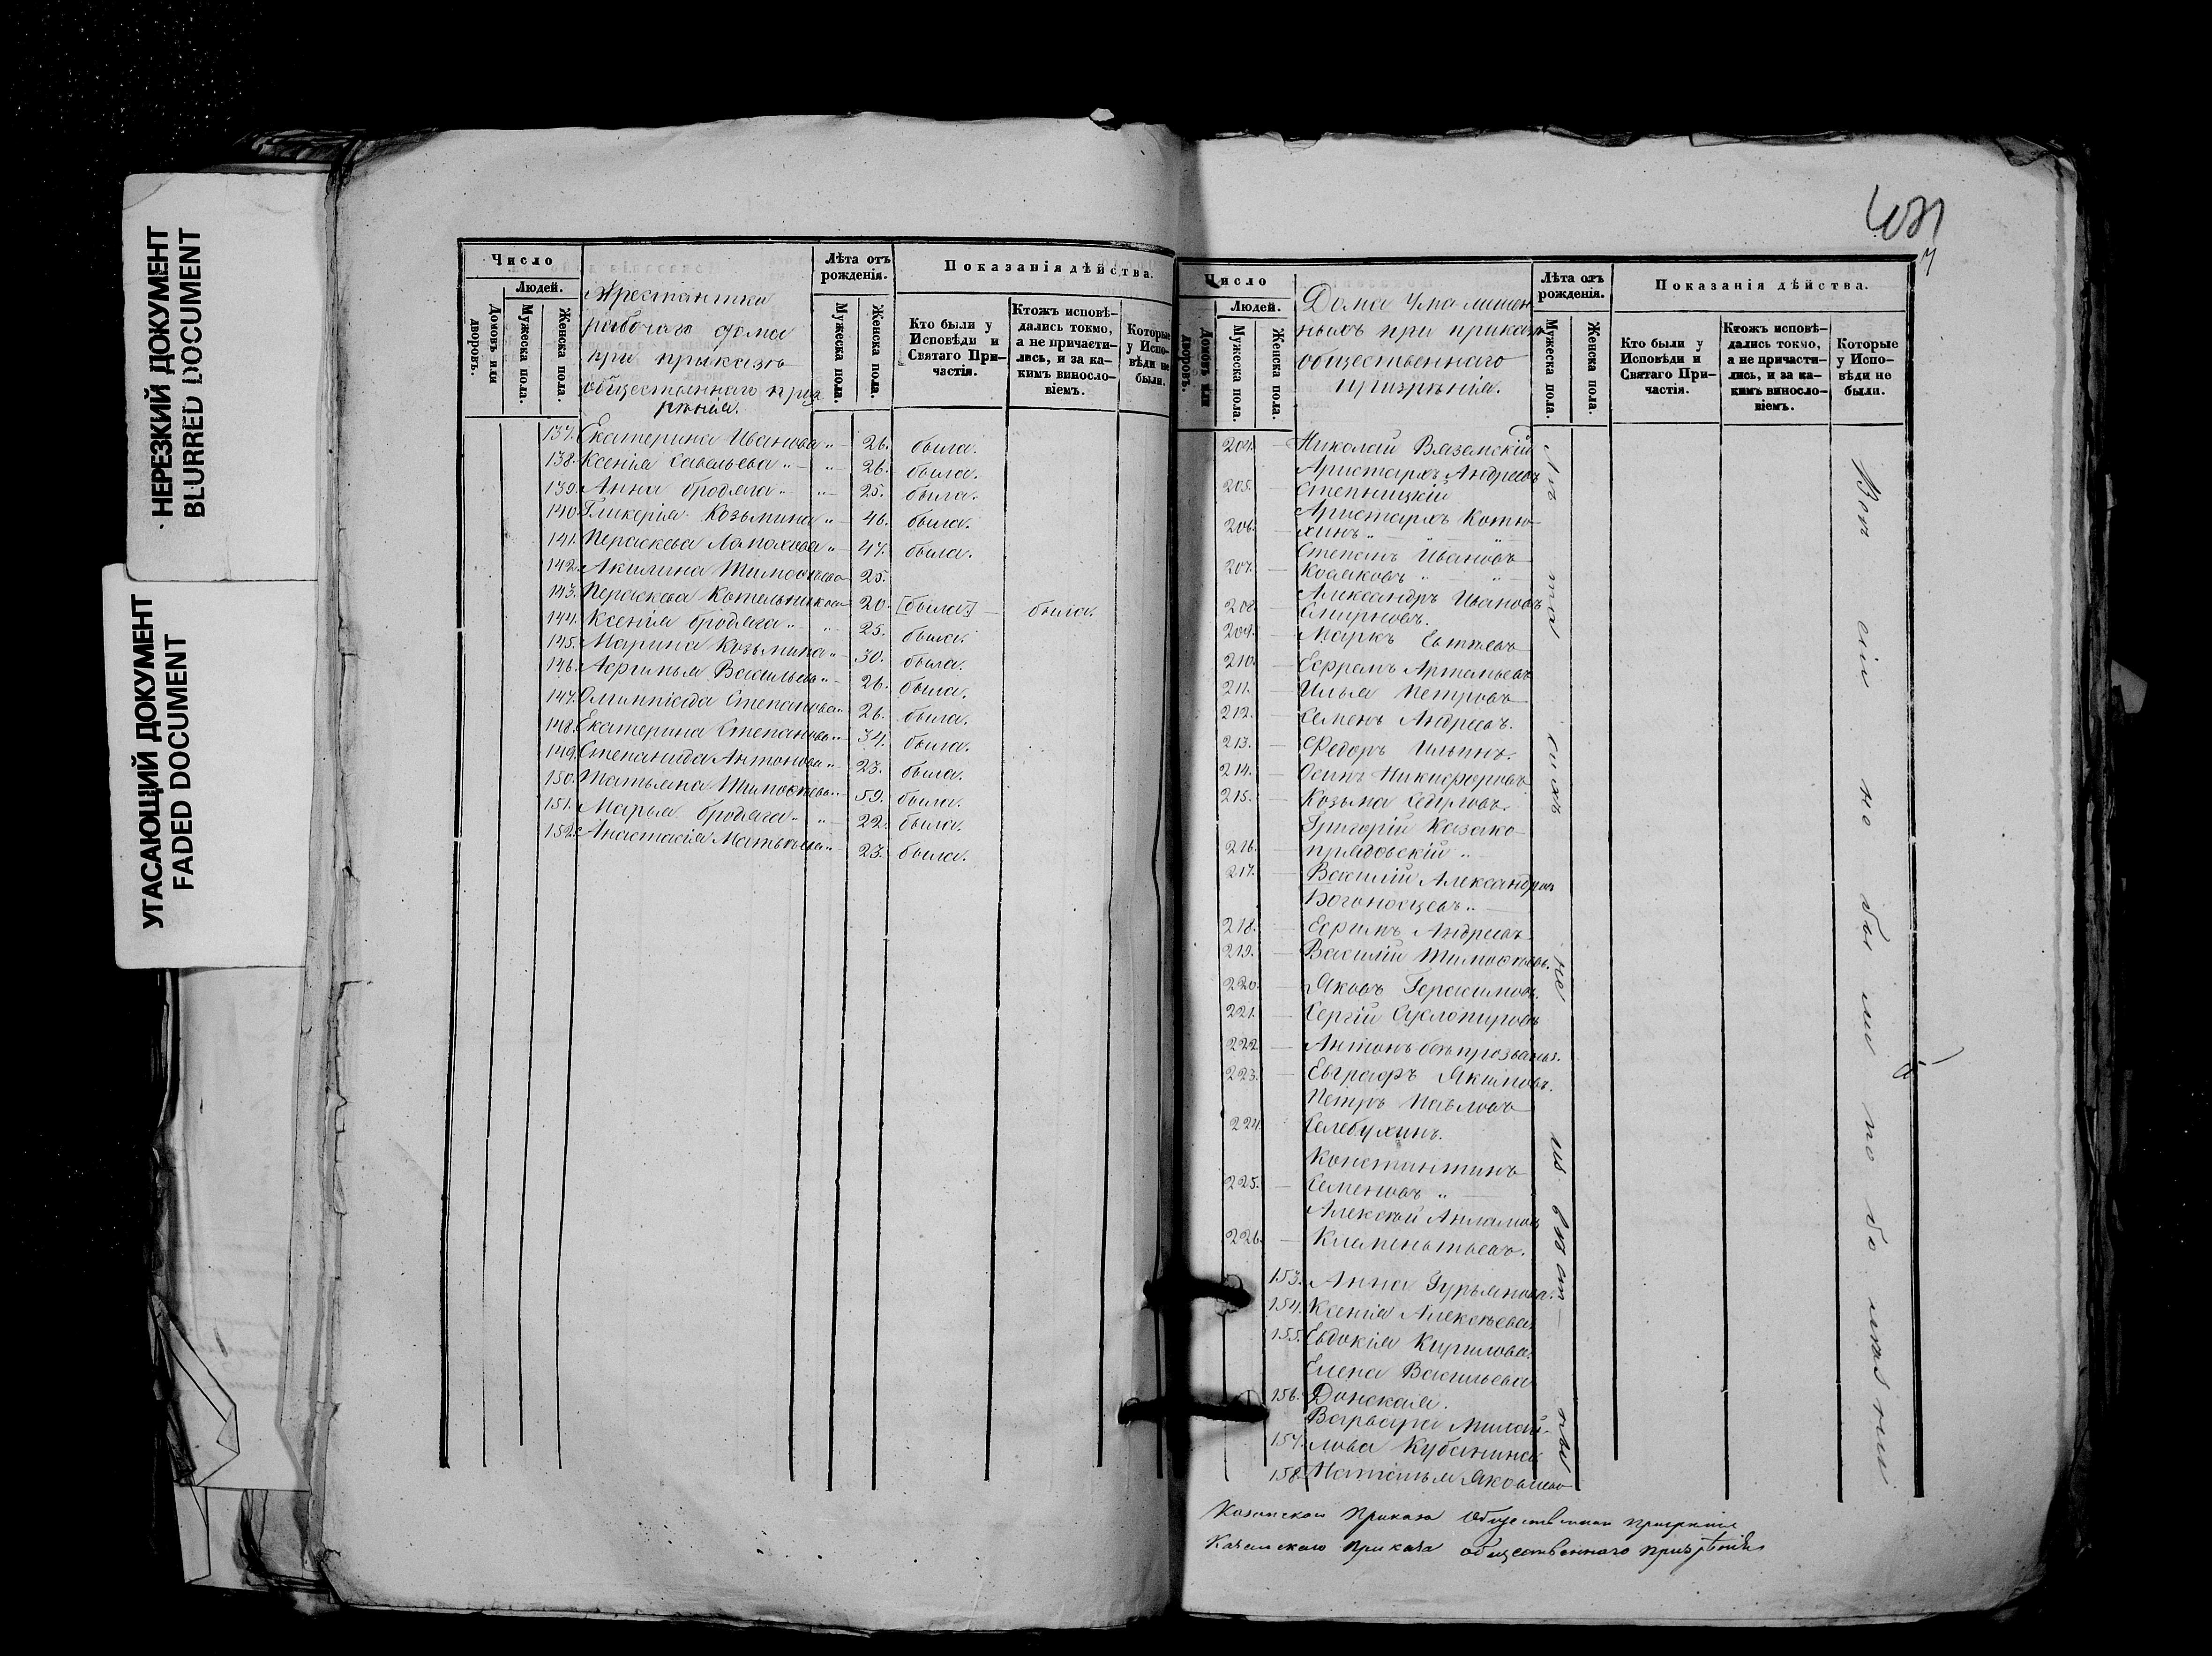 НЕРЕЗКИЙ ДОКУМЕНТ
BLURRED DOCUMENT
УГАСАЮЩИЙ ДОКУМЕНТ
FADED DOCUMENT
Число
Людей.
Домовъ или дворовъ.
Мужеска пола.
Женска пола.
Арестантки
рабочаго дома
при приказѣ
общественнаго приз
рѣнія.
Лѣта отъ рожденія.
Мужеска пола.
Женска пола.
Показанія дѣйства.
Кто были у Исповѣди и Святаго Причастія.
Ктожъ исповѣдались токмо, а не причастились, и за какимъ винословіемъ.
Которые у Исповѣди не были.
137. Екатерина Иванова „ — 26. была.
138. Ксенія Савельева „ — „ — 26. была.
139. Анна бродяга „ „ — 25. была.
140. Гликерія Козьмина „ — 46. была.
141. Параскева Ламахова „ — 47. была.
142. Акилина Тимофѣева 25.
143. Параскева Котельникова 20. [была] — была.
144. Ксенія бродяга „ „ — 25. была.
145. Марина Козьмина „ — 30. была.
146. Афимья Васильева „ — 26. была.
147. Олимпіада Степанова „ 26. была.
148. Екатерина Степанова „ — 34. была.
149. Степанида Антонова „ — 23. была.
150. Татьяна Тимофѣева „ — 59. была.
151. Марья бродяга „ „ — 22. была.
152. Анастасія Матвѣева „ — 23. была.
Число
Людей.
Домовъ или дворовъ.
Мужеска пола.
Женска пола.
Дома Умалишен
ныхъ при приказѣ
общественнаго
призрѣнія.
Лѣта отъ рожденія.
Мужеска пола.
Женска пола.
Показанія дѣйства.
Кто были у Исповѣди и Святаго Причастія.
Ктожъ исповѣдались токмо, а не причастились, и за какимъ винословіемъ.
Которые у Исповѣди не были.
204. — Николай Вяземскій
Аристархъ Андреевъ
205. — Степницкій
Аристархъ Котю-
206. — хинъ „ — „ — „
Степанъ Ивановъ
207. — Козаковъ „ — „ —
Александръ Ивановъ
208. — Смирновъ.
209. — Маркъ
210. — Ефремъ Артемьевъ
211. — Илья Петровъ
212. — Семенъ Андреевъ.
213. — Ѳедоръ Ильинъ.
214. — Осипъ Никифоровъ
215. — Козьма
Григорій Казако-
216. —
217. — Василій Александровъ
Богоносцевъ „ —
218. — Ефимъ Андреевъ
219. — Василій Тимофѣевъ.
220. — Яковъ Герасимовъ.
221. — Сергій
222. — Антонъ безъ прозванія.
223. — Евграфъ Якимовъ.
Петръ Павловъ
224. Селебухинъ.
Константинъ
225. — Семеновъ „ —
Алексѣй
226. — Клементьевъ.
153. Анна Гурьянова.
154. Ксенія Алексѣева
155. Евдокія Кирилова.
Елена Васильева
156. Донская.
Варвара Михай-
157. лова Кубанина
158. Наталья Яковлева
Лѣта ихъ не извѣстны
Вси сіи не были по болѣзни
Казанскаго Приказа Общественнаго Призрѣнія
Казанскаго Приказа общественнаго призрѣнія